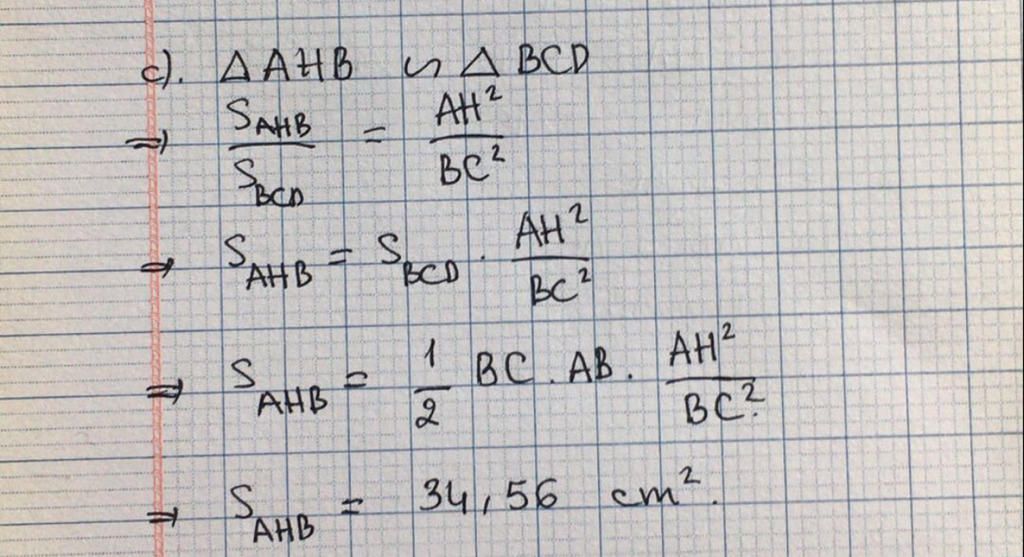 c). Δ AHB ∽ Δ BCD
⇒ S_AHB / S_BCD = AH² / BC²
⇒ S_AHB = S_BCD . AH² / BC²
⇒ S_AHB = 1/2 BC . AB . AH² / BC².
⇒ S_AHB = 34,56 cm².